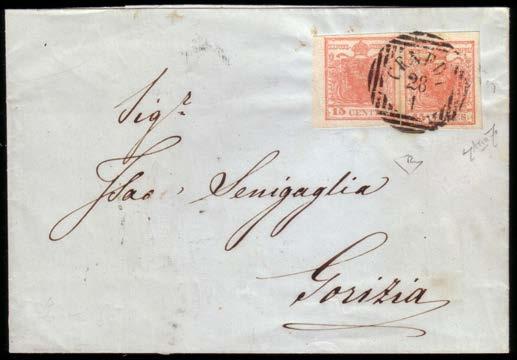 15 CENTES
CENEDA
28
1
Sigr.
Isac Senigaglia
Gorizia